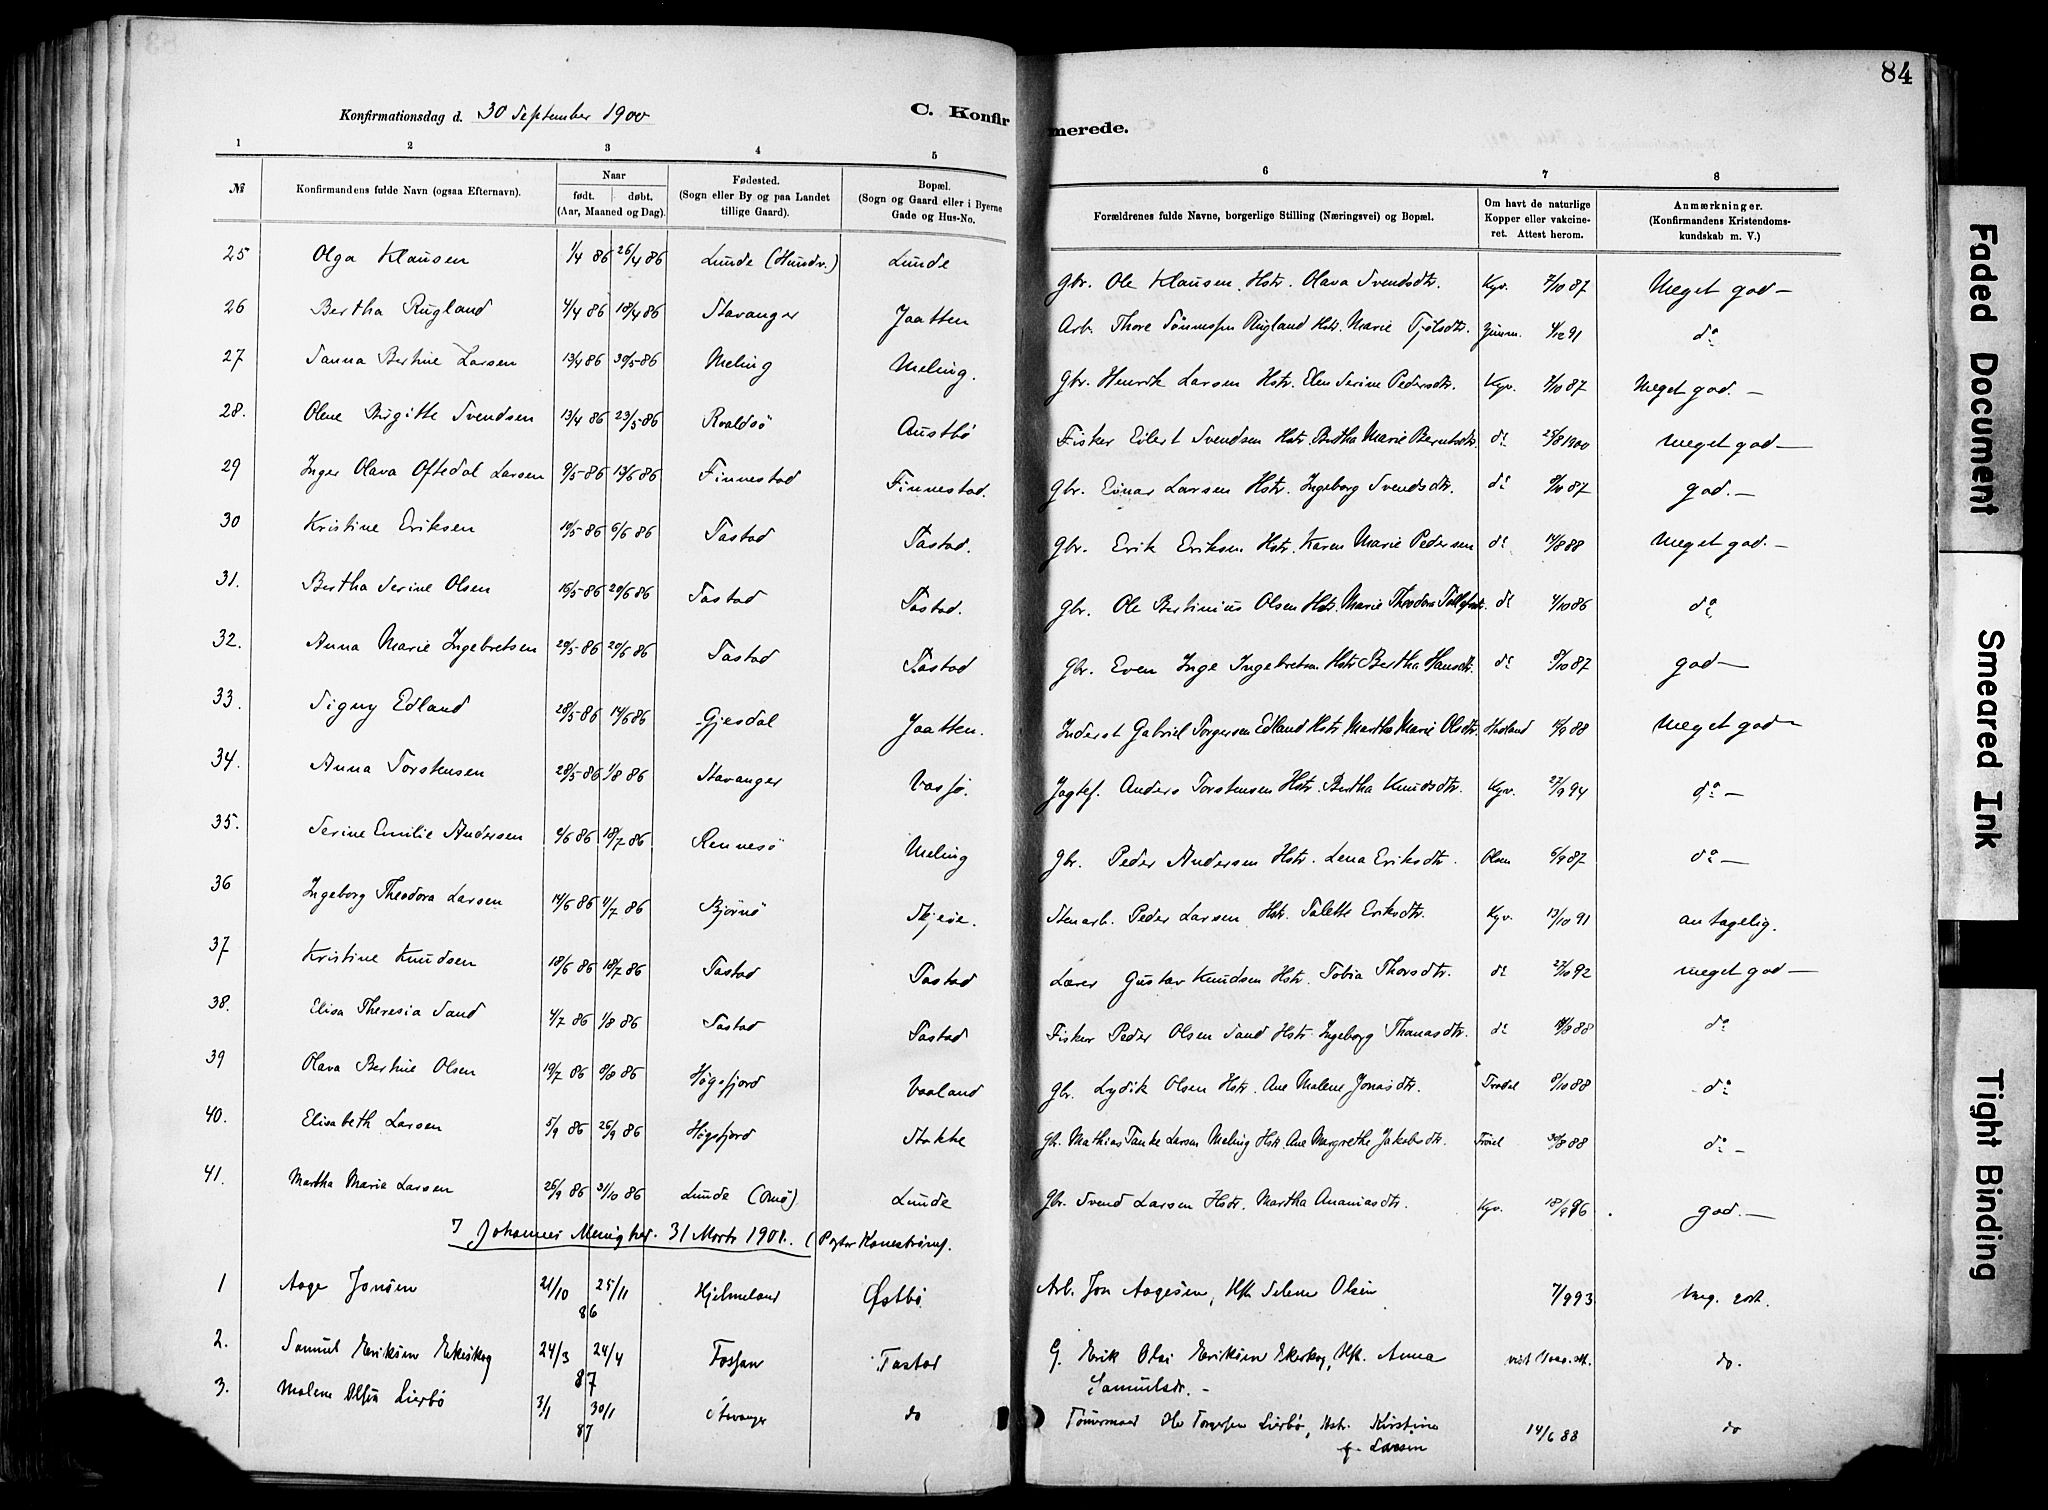 84
Konfirmationsdag d. 30 September 1900
C. Konfirmerede.
1 2 3 4 5 6 7 8
№
Konfirmandens fulde Navn (ogsaa Efternavn).
Naar
født. døbt.
(Aar, Maaned og Dag).
Fødested.
(Sogn eller By og paa Landet
tillige Gaard).
Bopæl.
(Sogn og Gaard eller i Byerne
Gade og Hus-No.
Forældrenes fulde Navne, borgerlige Stilling (Næringsvei) og Bopæl.
Om havt de naturlige
Kopper eller vakcine-
ret. Attest herom.
Anmærkninger.
(Konfirmandens Kristendoms-
kundskab m. V.)
25 Olga Klausen 1/4 86 26/4 86 Lunde (Hundv.) Lunde Gbr. Ole Klausen Hstr. Olava Svendsdtr. Kyv. 7/10 87 Meget god —
26 Bertha Rugland 4/4 86 18/4 86 Stavanger Jaatten Arb. Thore Tønnessen Rugland Hstr. Marie 4/12 91 do
27 Tanna Bertine Larsen 13/4 86 30/5 86 Meling Meling. Gbr. Henrik Larsen Hstr. Elen Serine Pedersdtr. Kyv. 7/10 87 Meget god. —
28. Olene Birgitte Svendsen 13/4 86 23/5 86 Roaldsö Austbö Fisker Eilert Svendsen Hstr. Bertha Marie Berntsdtr. do 25/8 1900 Meget god —
29 Inger Olava Oftedal Larsen 9/5 86 13/6 86 Finnestad Finnestad. Gbr. Einar Larsen Hstr. Ingeborg Svendsdtr. do 9/10 87 god. —
30 Kristine Eriksen 10/5 86 6/6 86 Tastad Tastad. Gbr. Erik Eriksen Hstr. Karen Marie Pedersen do 14/8 88 Meget god. —
31. Bertha Serine Olsen 16/5 86 20/6 86 Tastad Tastad. Gbr. Ole Bertinius Olsen Hstr. Marie Theodora do 4/10 86 do
32. Anna Marie Ingebretsen 20/5 86 20/6 86 Tastad Tastad Gbr. Even Inge Ingebretsen Hstr. Bertha Hansdtr. do 8/10 87 god —
33. Signy Edland 28/5 86 14/6 86 Gjesdal Jaatten. Inderst Gabriel Torgersen Edland Hstr. Martha Marie Olsdtr. Husland 88 Meget god —
34. Anna Torstensen 28/5 86 1/8 86 Stavanger Vassö. Jagtef. Anders Torstensen Hstr. Bertha Knudsdtr. Kyv. 27/9 94 do —
35. Serine Emilie Andersen 9/6 86 18/7 86 Rennesö Meling Gbr. Peder Andersen Hstr. Lena Eriksdtr. Olsen 6/9 87 do —
36 Ingeborg Theodora Larsen 14/6 86 11/7 86 Bjørnö Skjeie. Stenarb. Peder Larsen Hstr. Talette Eriksdtr. Kyv. 13/10 91 antagelig.
37 Kristine Knudsen 18/6 86 18/7 86 Tastad Tastad Lærer Gustav Knudsen Hstr. Tobia Thorsdtr. do 27/10 92 Meget god —
38. Elisa Theresia Sand 4/7 86 1/8 86 Tastad Tastad Fisker Peder Olsen Sand Hstr. Ingeborg Thomasdtr. do 88 do
39 Olava Bertine Olsen 19/7 86 8/8 86 Høgsfjord Vaaland Gbr. Lydik Olsen Hstr. Ane Malene Jonasdtr. 8/10 88 do
40. Elisabeth Larsen 5/9 86 26/9 86 Høgsfjord Stokke Gb. Mathias Tanke Larsen Meling Hstr. Ane Margrethe Jakobsdtr. 30/8 88 do —
41. Martha Marie Larsen 26/9 86 31/10 86 Lunde (Omö) Lunde Gbr. Svend Larsen Hstr. Martha Ananiasdtr. Kyv. 18/9 96 god. —
I Johannes Menighed. 31 Marts 1901. (Pastor Kanestrøm).
1 Aage Jonsen 21/10 25/11 86 Hjelmeland Østbö Arb. Jon Aagesen, Hst. Selene Olsen 7/9 93 Meg. godt.
2. Samuel Eriksen Ekeskog 24/3 24/4 87 Fossan Tastad G. Erik Olai Eriksen Ekeskog, Hst. Anna
Samuelsdr. — do.
3. Malene Olsen Lierbö 3/1 30/1 87 Stavanger do Tømmermand Ole Torgersen Lierbö, Hstr. Kirstine
f. Larsen 14/6 88 do
Faded Document
Smeared Ink
Tight Binding